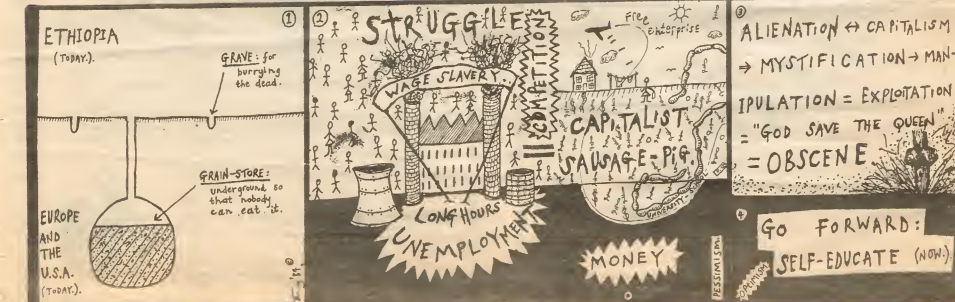 ①
ETHIOPIA
(TODAY.).
GRAVE: for
burrying
the dead.
GRAIN-STORE:
underground so
that nobody
can eat it.
EUROPE
AND
THE
U.S.A.
(TODAY.).
②
STRUGGLE
WAGE SLAVERY.
COMPETITION
LONG HOURS
UNEMPLOYMENT
Free
enterprise
CAPITALIST
SAUSAGE-PIG.
MONEY
PESSIMISM.
OPTIMISM
③
ALIENATION ↔ CAPITALISM
→ MYSTIFICATION → MAN-
IPULATION = EXPLOITATION
= "GOD SAVE THE QUEEN"
= OBSCENE
4
GO FORWARD:
SELF-EDUCATE (NOW.).